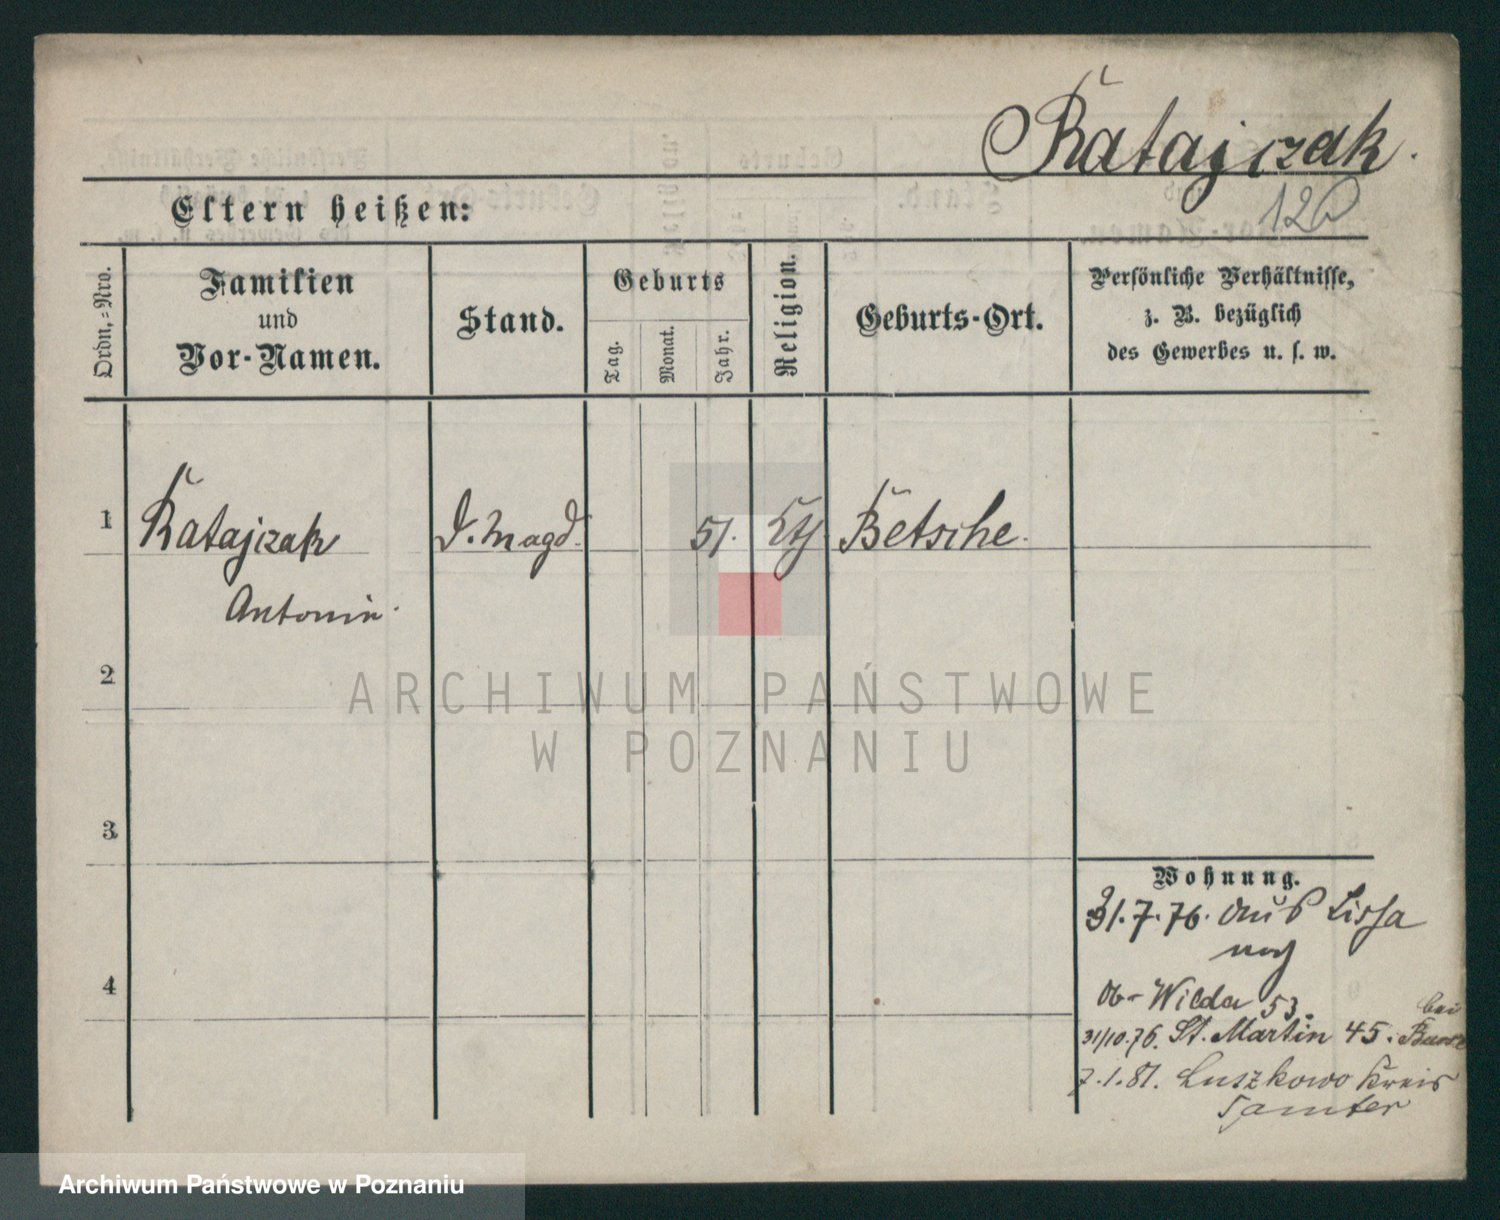 Ratajczak.
120
Eltern heißen:
Ordn.=Nro.
Familien
und
Vor-Namen.
Stand.
Geburts
Tag.
Monat.
Jahr.
Religion.
Geburts-Ort.
Persönliche Verhältnisse,
z. B. bezüglich
des Gewerbes u. s. w.
1
Ratajczak
D. Magd.
51.
Kth
Betsche.
Antonin.
2
ARCHIWUM PAŃSTWOWE
W POZNANIU
3
Wohnung.
31.7.76. aus Lissa
nach
4
Ob-Wilda 53.
31/10.76. St. Martin 45. bei
7.1.81. Luszkowo Kreis
Samter
Archiwum Państwowe w Poznaniu